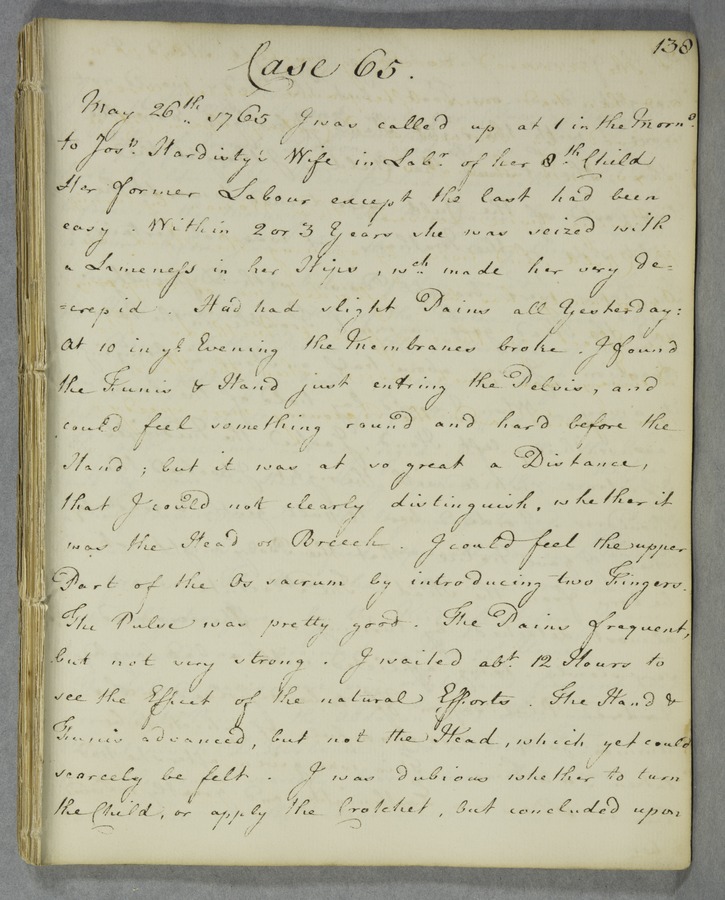 138
Case 65.
May 26th 1765 I was called up at 1 in the Morng
to Josh. Hardisty's Wife in Labr. of her 8th Child
Her former Labour except the last had been
easy. Within 2 or 3 Years she was seized with
a Lameness in her Hips, wch. made her very de=
=crepid. Had had slight Pains all Yesterday:
At 10 in ye. Evening the Membranes broke. I found
the Funis & Hand just entring the Pelvis, and
could feel something round and hard before the
Hand; but it was at so great a Distance,
that I could not clearly distinguish, whether it
was the Head or Breech. I could feel the upper
Part of the Os sacrum by introducing two Fingers.
The Pulse was pretty good. The Pains frequent,
but not very strong. I waited abt. 12 Hours to
see the Effect of the natural Efforts. The Hand &
Funis advanced, but not the Head, which yet could
scarcely be felt. I was dubious whether to turn
the Child, or apply the Crotchet, but concluded upon